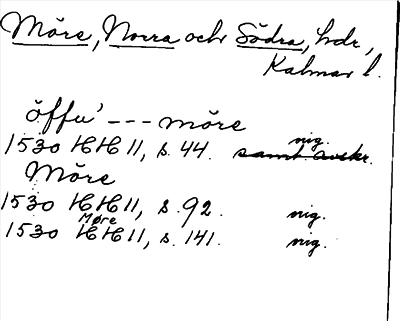 Möre, Norra och Södra, hdr,
Kalmar l.
öffu' --- möre
1530 HH 11, s. 44. samt avskr. nig.
Möre
1530 HH 11, s. 92. nig.
Møre
1530 HH 11, s. 141. nig.